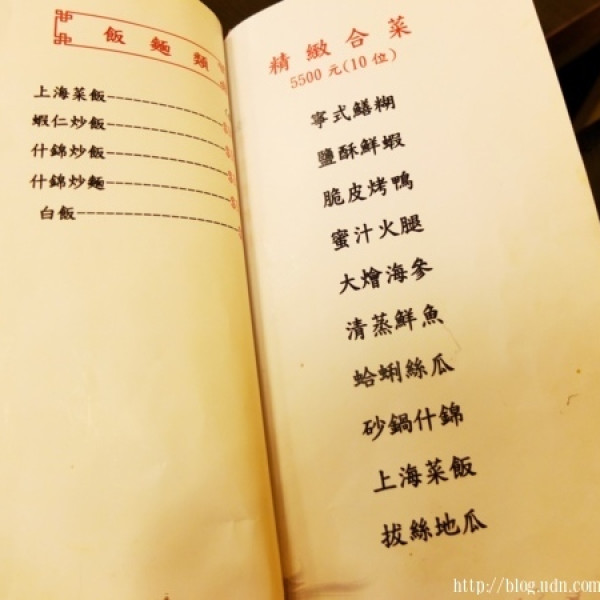 飯麵類
上海菜飯
蝦仁炒飯
什錦炒飯
什錦炒麵
白飯
精緻合菜
5500 元(10 位)
寧式鱔糊
鹽酥鮮蝦
脆皮烤鴨
蜜汁火腿
大燴海參
清蒸鮮魚
蛤蜊絲瓜
砂鍋什錦
上海菜飯
拔絲地瓜
http://blog.udn.com/